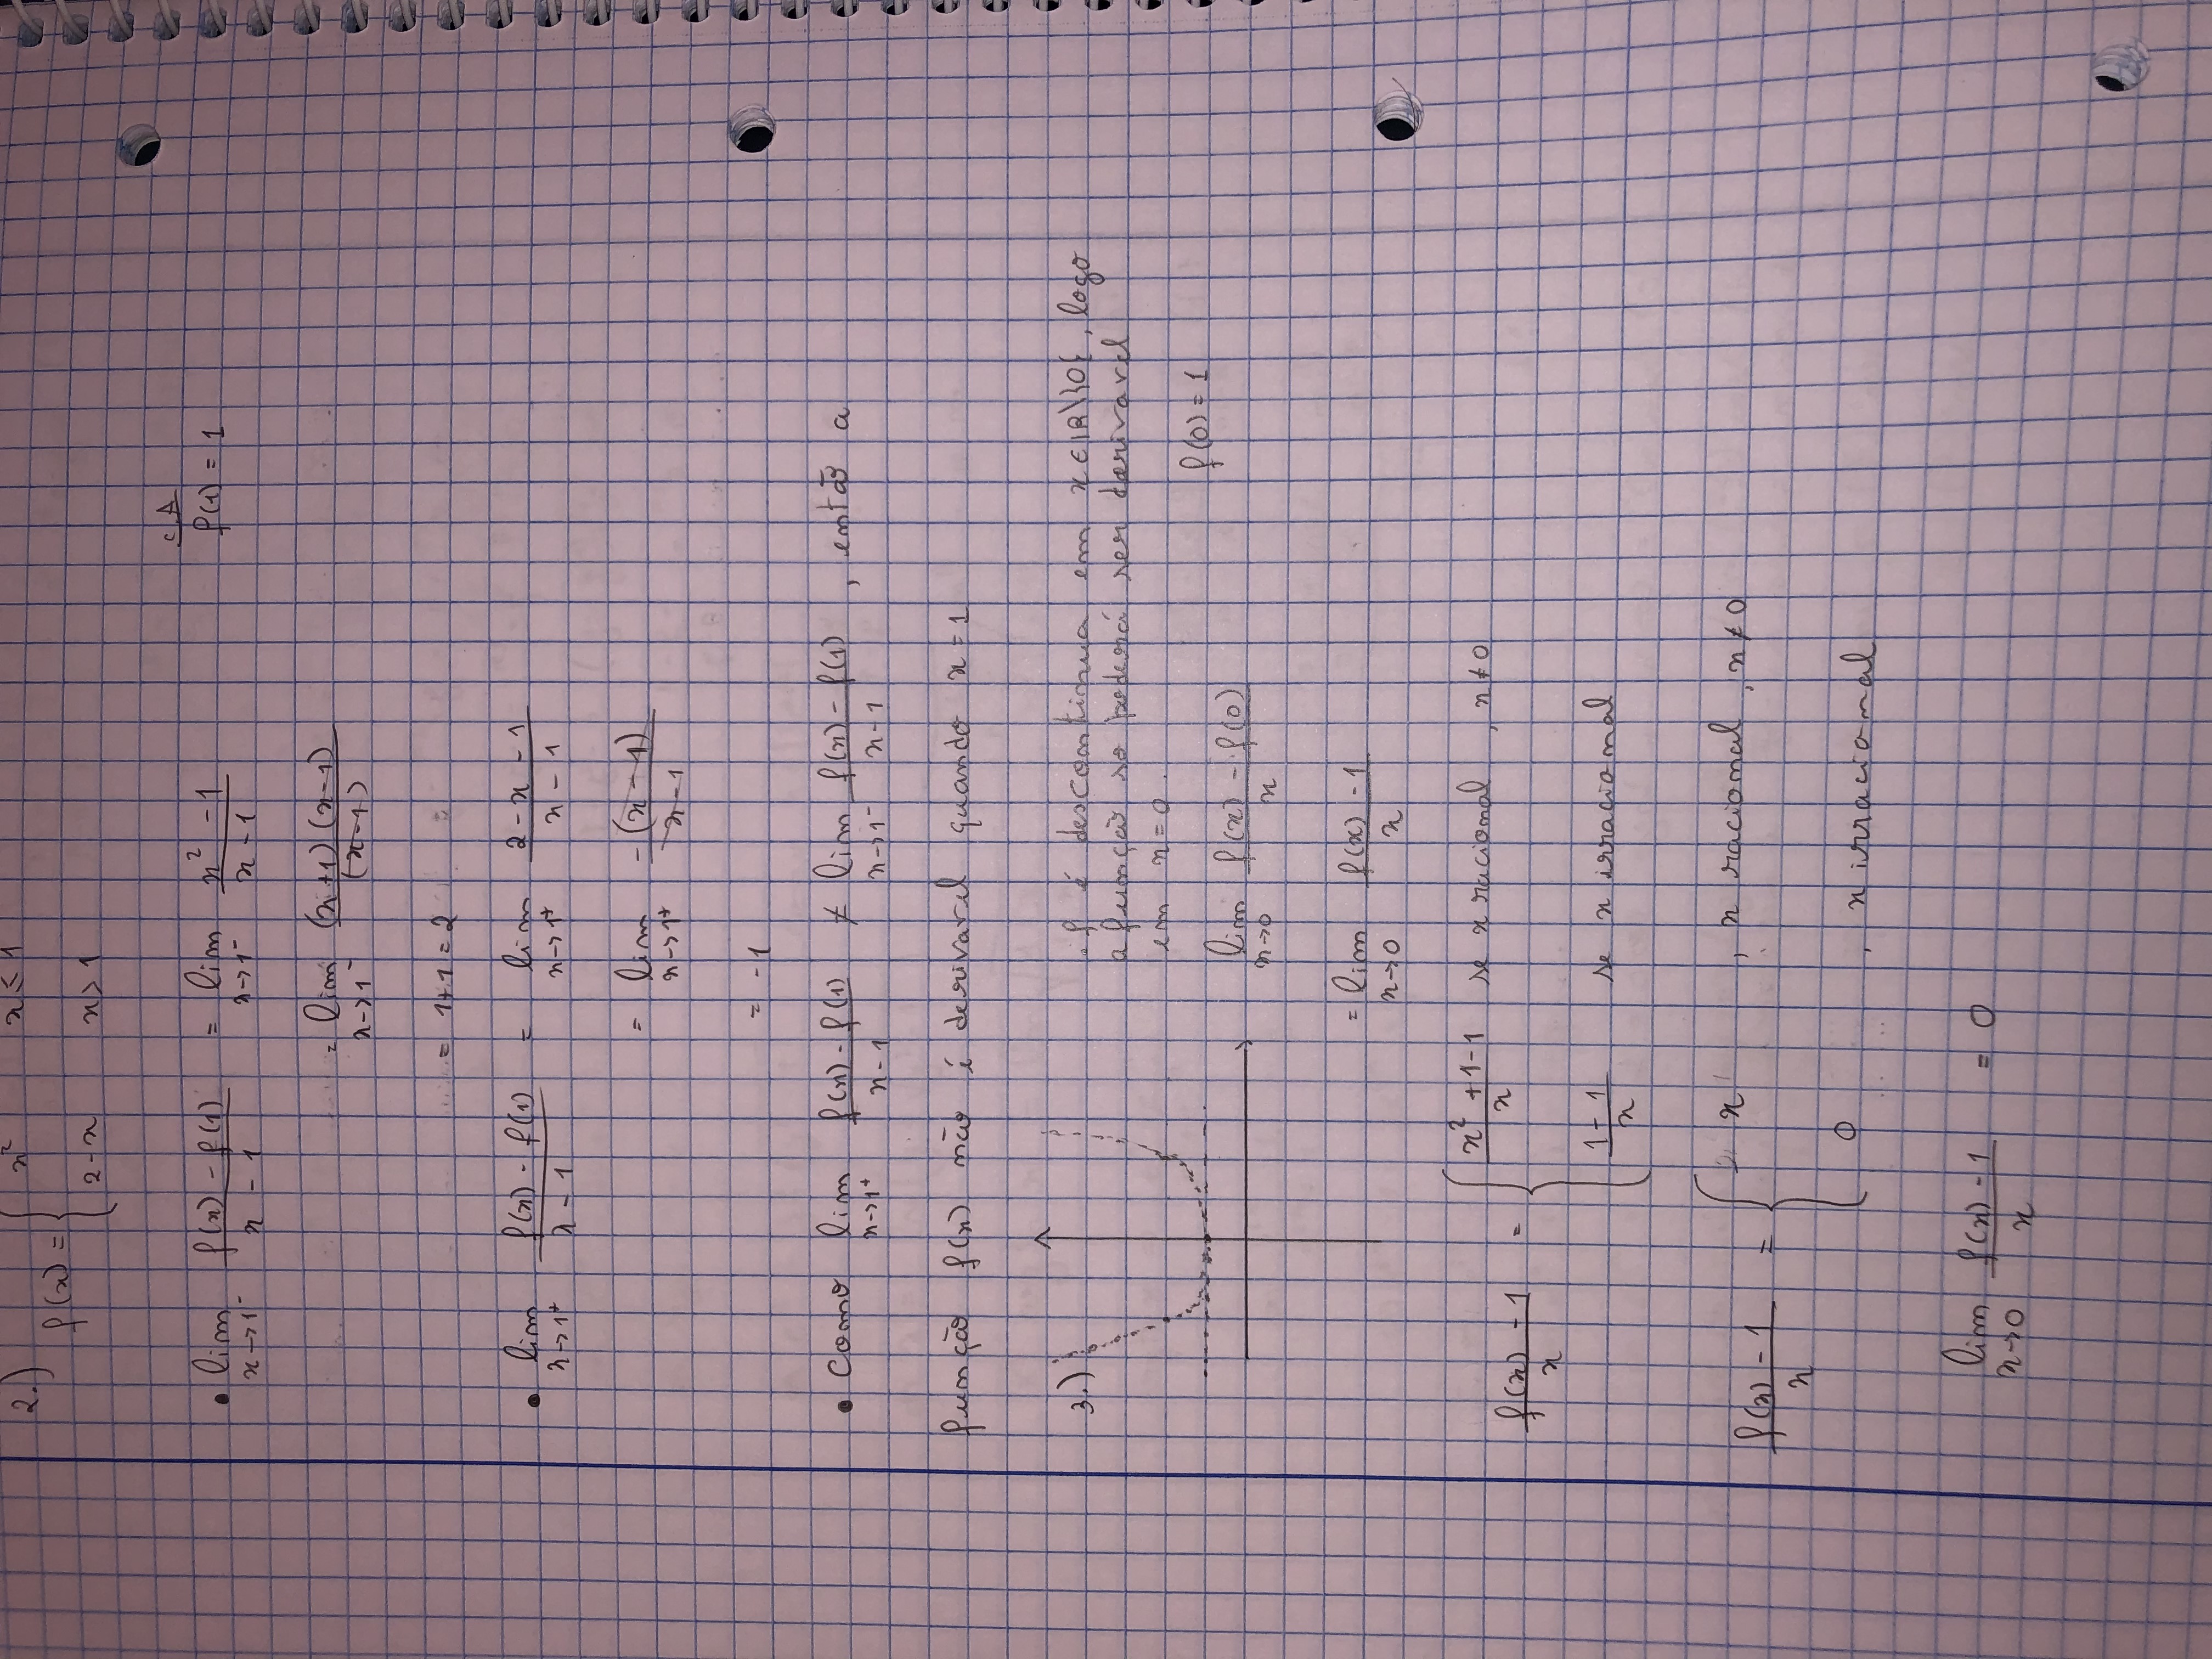 2.) f(x) = { x² x ≤ 1
2 - x x > 1
c.A
f(1) = 1
• lim x→1⁻ (f(x) - f(1))/(x - 1) = lim x→1⁻ (x² - 1)/(x - 1)
= lim x→1⁻ ((x+1)(x-1))/(x-1)
= 1+1 = 2
• lim x→1⁺ (f(x) - f(1))/(x - 1) = lim x→1⁺ (2 - x - 1)/(x - 1)
= lim x→1⁺ (-(x - 1))/(x - 1)
= -1
• Como lim x→1⁺ (f(x) - f(1))/(x - 1) ≠ lim x→1⁻ (f(x) - f(1))/(x - 1) , então a
função f(x) não é derivavel quando x = 1
3.) . f é descontinua em x ∈ IR\}0{ , logo
a função so poderá ser derivavel
em x = 0 .
f(0) = 1
lim x→0 (f(x) - f(0))/x
= lim x→0 (f(x) - 1)/x
(f(x) - 1)/x = { (x² + 1 - 1)/x se x racional , x ≠ 0
(1 - 1)/x se x irracional
(f(x) - 1)/x = { x , x racional , x ≠ 0
0 , x irracional
lim x→0 (f(x) - 1)/x = 0